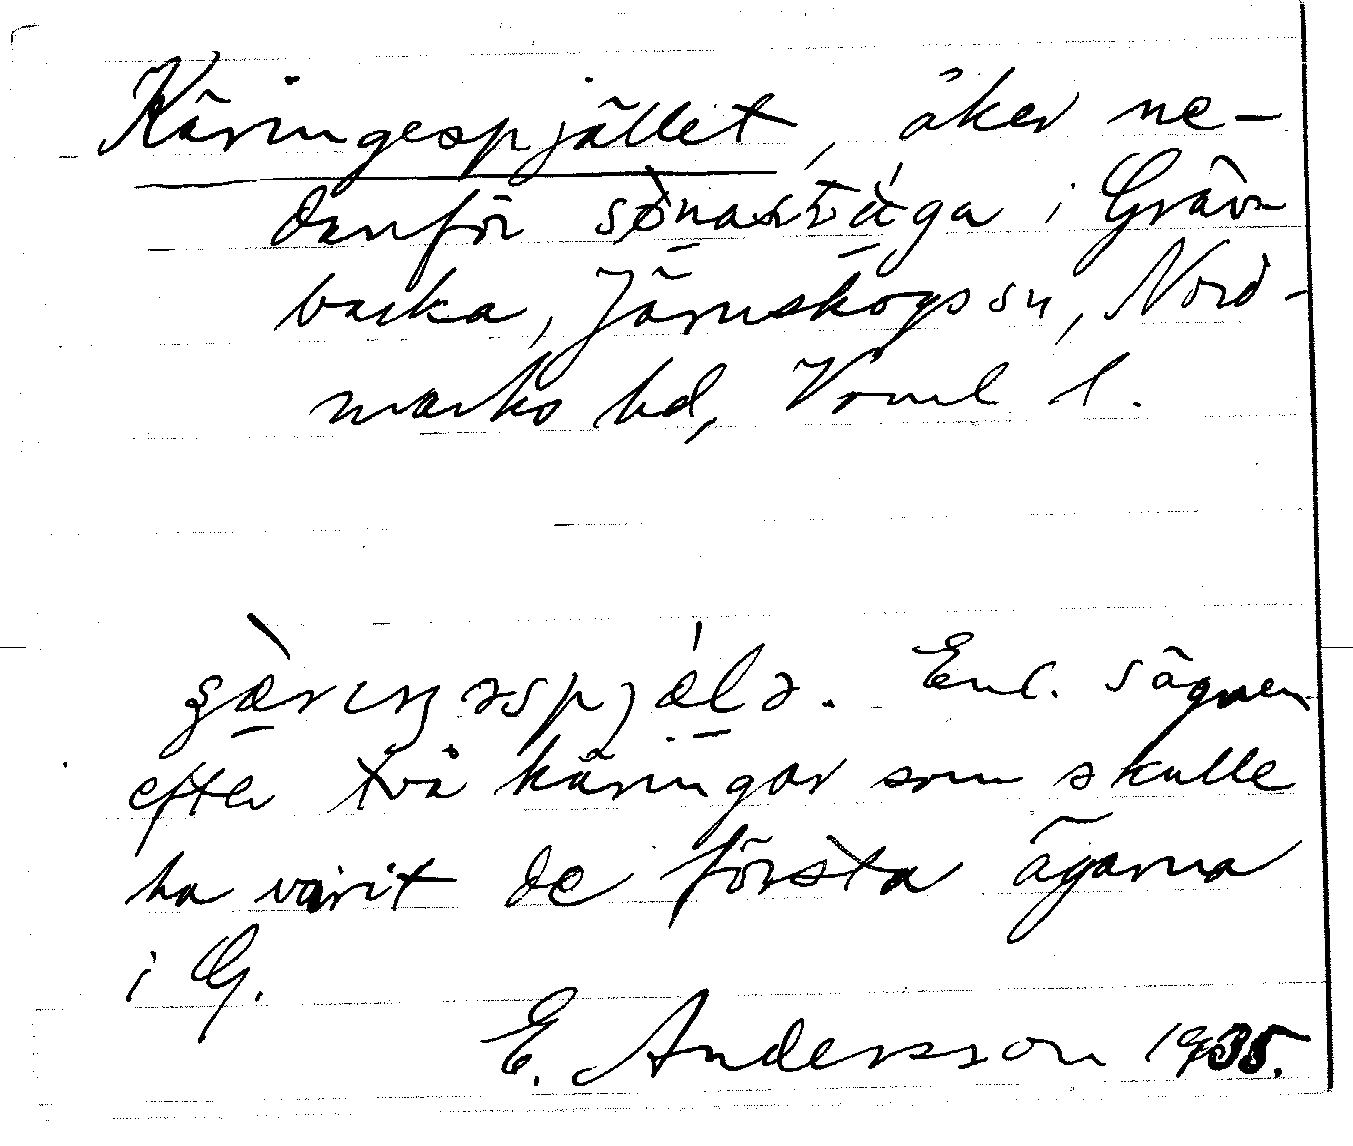 Käringespjället, åker ne-
danför i Gräv-
backa, Järnskogs sn, Nord-
marks hd, Vrml l.
Enl. sägnen
efter två käringar som skulle
ha varit de första ägarna
i G.
E. Andersson 1935.